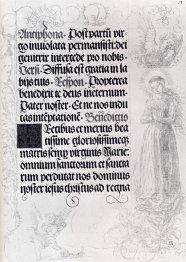 Antiphona. Post partū vir/
go inuiolata permansisti: dei
genitrix intercede pro nobis.
Versi. Diffusa est gratia in la
bijs tuis. Respon. Propterea
benedixit te deus in eternum.
Pater noster. Et ne nos indu
cas in tēptationē. Benedictio
Precibus et meritis bea
tissime gloriosissimeqȝ
matris semp virginis Marie:
omnium sanctorum et sancta
rum perducat nos dominus
noster iesus christus ad regna